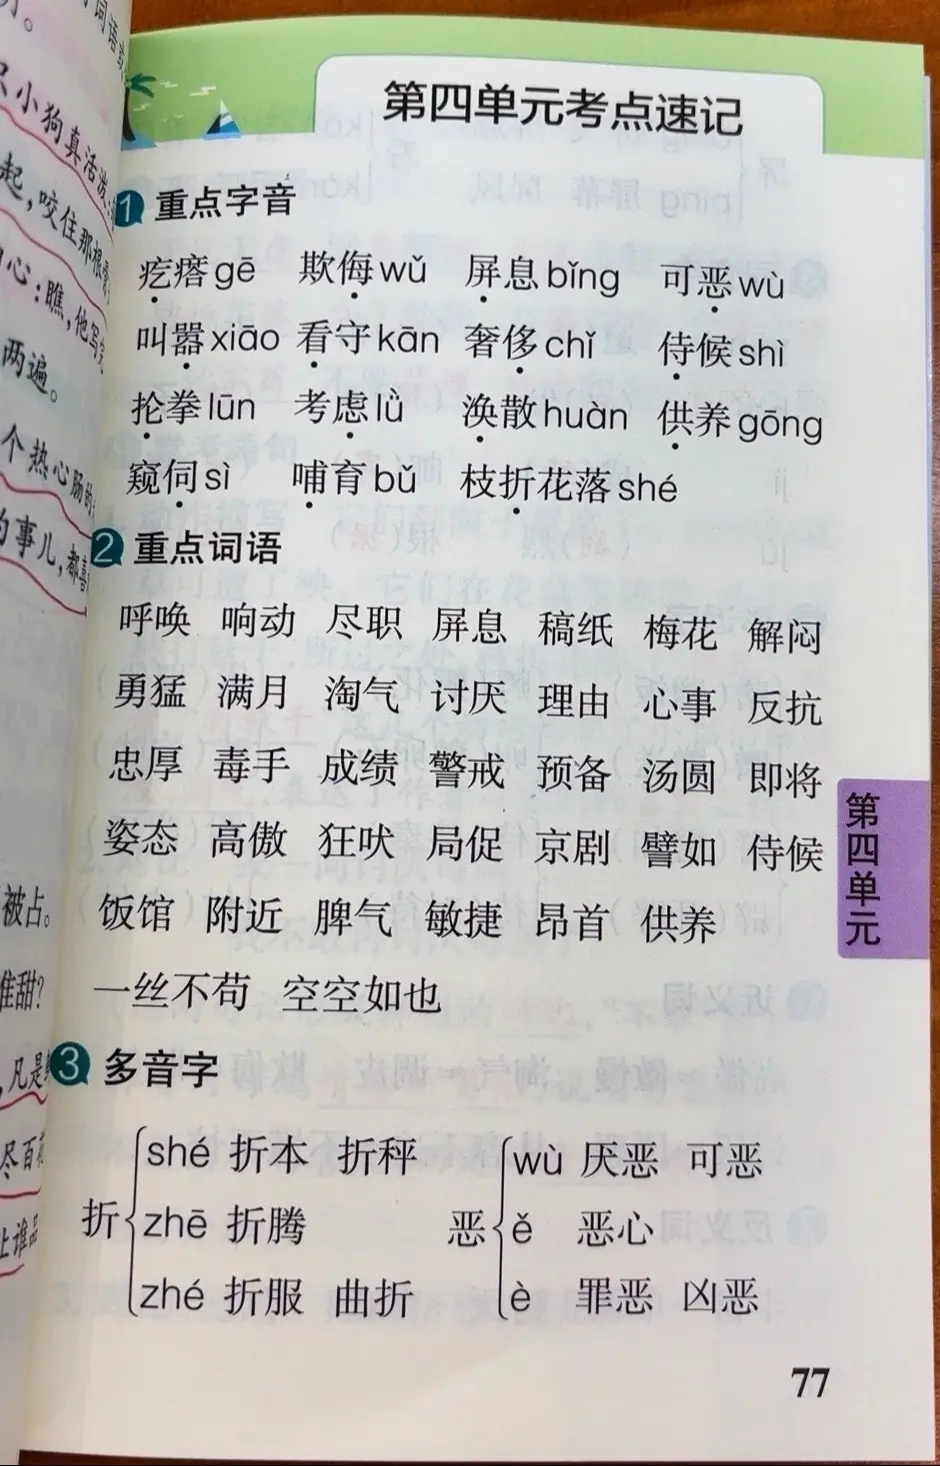 第四单元考点速记
1 重点字音
疙瘩gē 欺侮wǔ 屏息bǐng 可恶wù
叫嚣xiāo 看守kān 奢侈chǐ 侍候shì
抡拳lūn 考虑lǜ 涣散huàn 供养gōng
窥伺sì 哺育bǔ 枝折花落shé
2 重点词语
呼唤 响动 尽职 屏息 稿纸 梅花 解闷
勇猛 满月 淘气 讨厌 理由 心事 反抗
忠厚 毒手 成绩 警戒 预备 汤圆 即将
姿态 高傲 狂吠 局促 京剧 譬如 侍候
饭馆 附近 脾气 敏捷 昂首 供养
一丝不苟 空空如也
3 多音字
shé 折本 折秤
折 zhē 折腾
zhé 折服 曲折
wù 厌恶 可恶
恶 ě 恶心
è 罪恶 凶恶
第四单元
77
小狗真活泼
起，咬住那根
心：瞧，他写完
两遍。
个热心肠的
事儿，都喜
被占。
谁甜？
凡是
尽百
上谁品